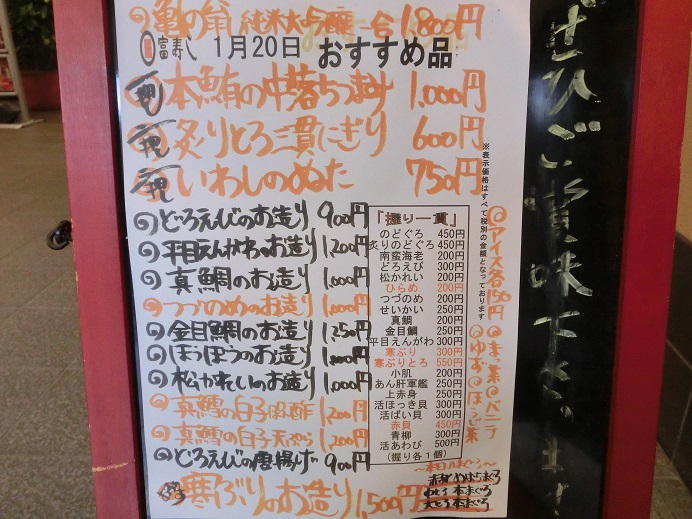 亀の翁 純米大吟醸 一合 1,800円
富寿し 1月20日 おすすめ品
本鮪の中落ちつまみ 1,000円
炙りとろ二貫にぎり 600円
いわしのぬた 750円
どろえびのお造り 900円
平目えんがわのお造り 1,200円
真鯛のお造り 1,000円
つづのめのお造り 1,000円
金目鯛のお造り 1,250円
ほうぼうのお造り 1,000円
松かれいのお造り 1,000円
真鱈の白子ポン酢 1,200円
真鱈の白子天ぷら 1,200円
どろえびの唐揚げ 900円
寒ぶりのお造り 1,500円
「握り一貫」
のどぐろ 450円
炙りのどぐろ 450円
南蛮海老 200円
どろえび 300円
松かれい 200円
ひらめ 200円
つづのめ 200円
せいかい 250円
真鯛 200円
金目鯛 250円
平目えんがわ 300円
寒ぶり 300円
寒ぶりとろ 550円
小肌 200円
あん肝軍艦 250円
上赤身 250円
活ほっき貝 300円
活ばい貝 300円
赤貝 450円
青柳 300円
活あわび 500円
(握り各1個)
※表示価格はすべて税別の金額となっております
アイス各150円
まっ茶 バニラ
ゆず ほうじ茶
〜本日のまぐろ〜
中とろ 本まぐろ
大とろ 本まぐろ
ぜひご賞味下さいませ